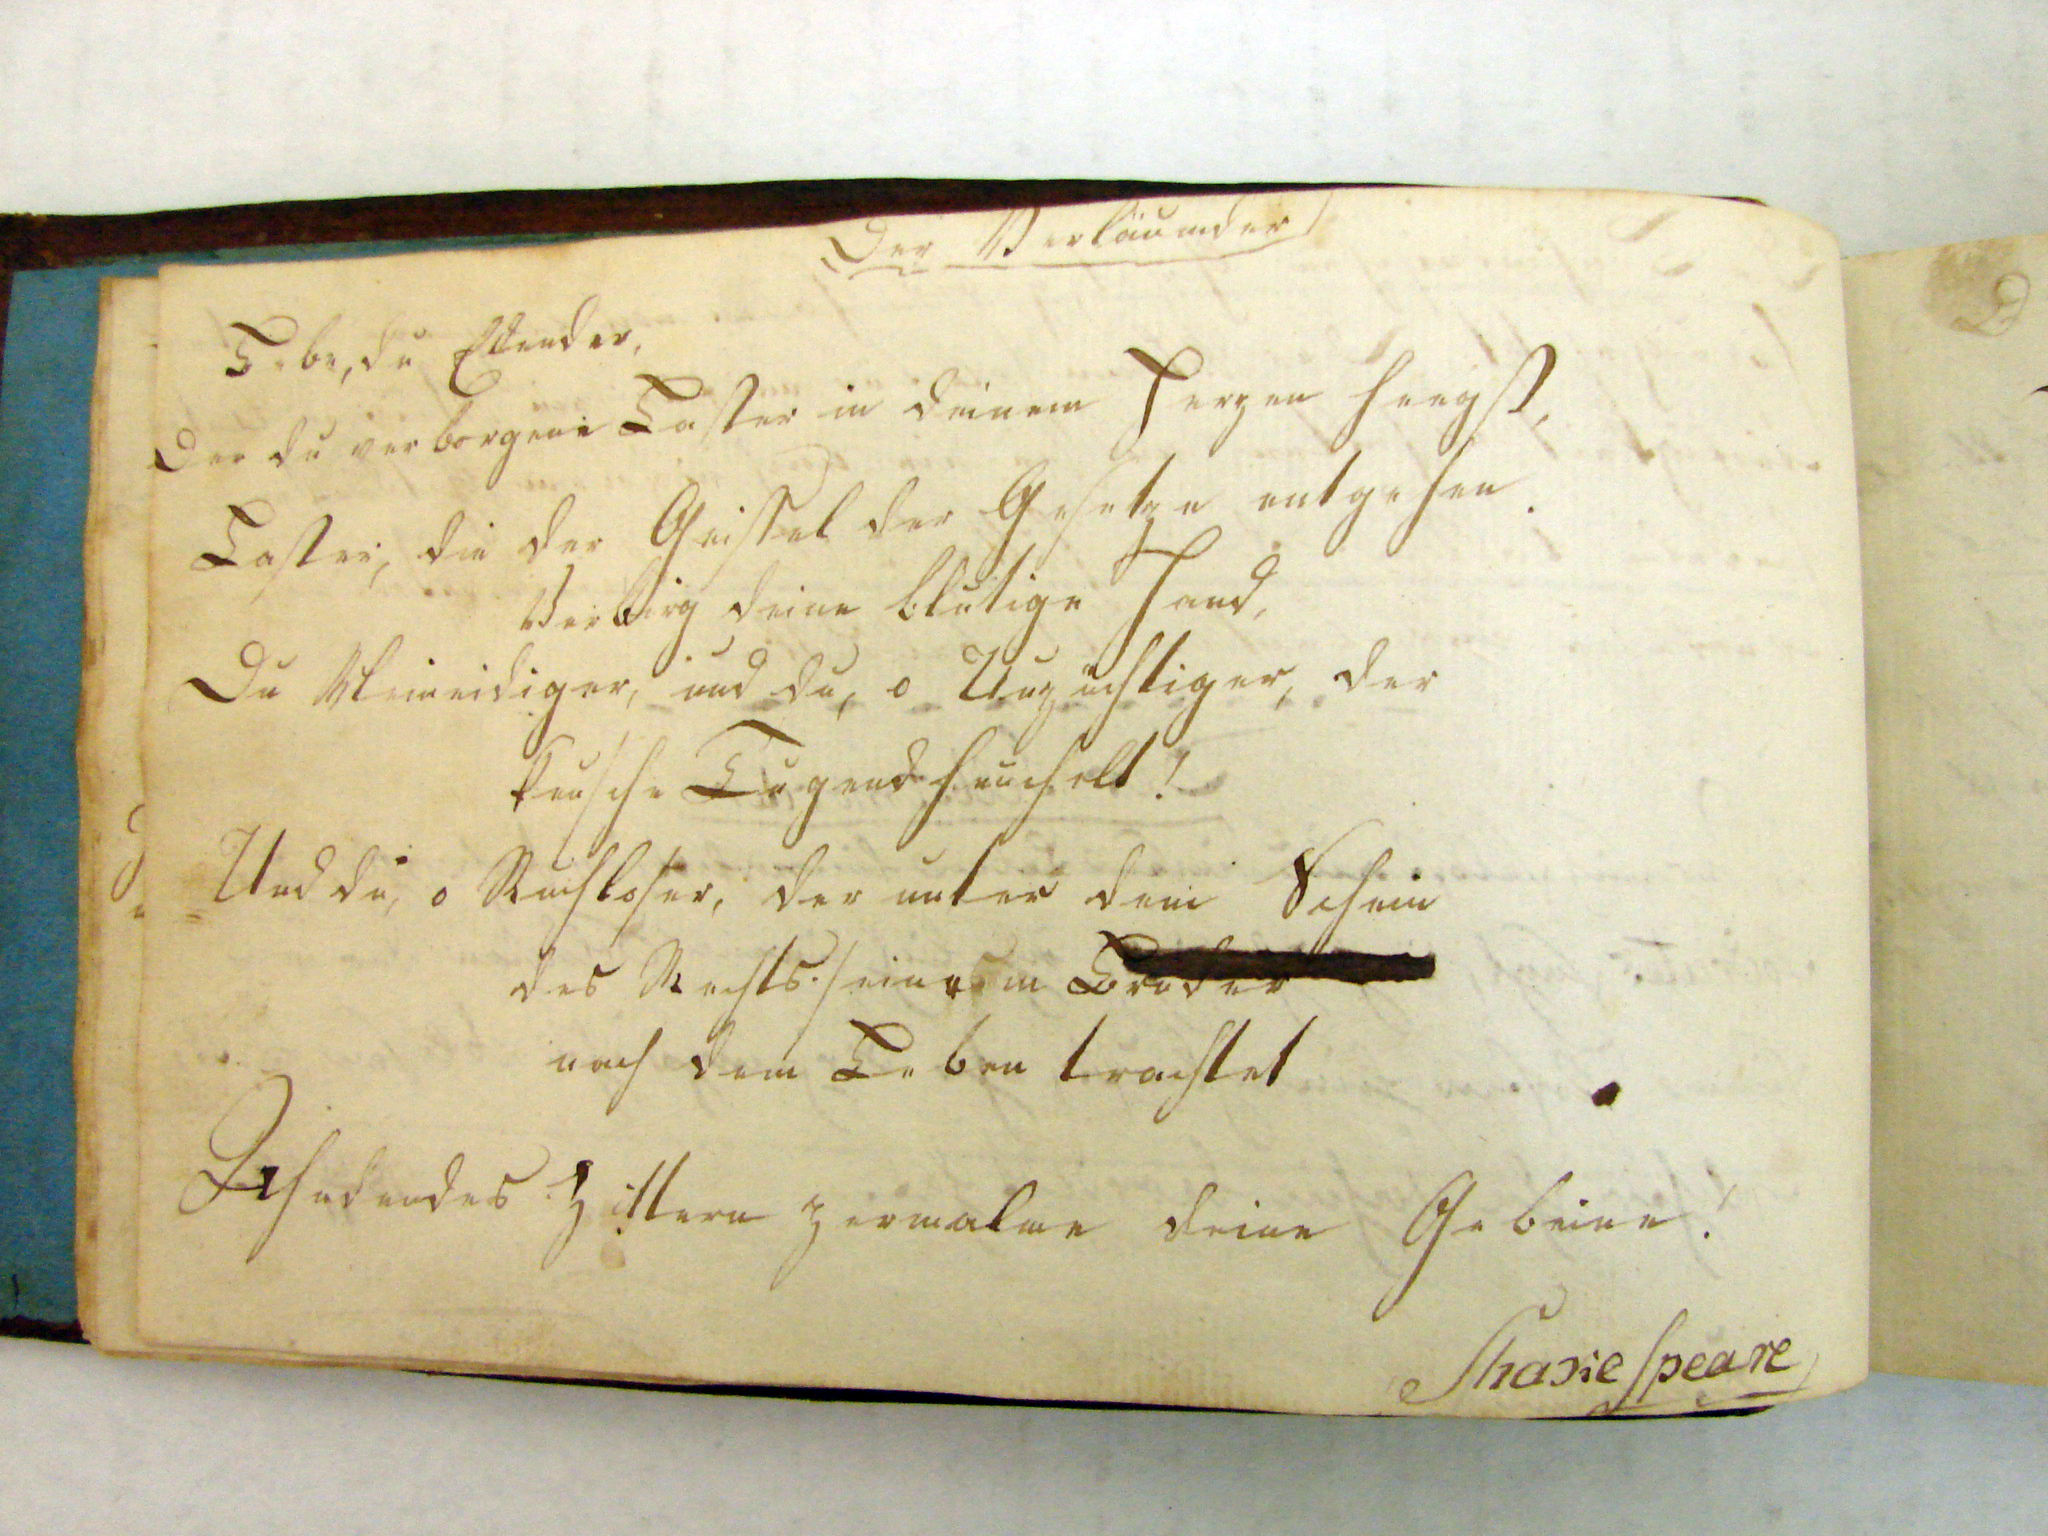 Der Verläumder
Bebe, du Elender,
Der du verborgene Laster in deinem Herzen heegst,
Laster, die der Geissel der Gesetze entgehen.
Verbirg deine blutige Hand,
Du Meineidiger, und du, o Unzüchtiger, der
keusche Tugend heuchelt!
Und du, o Ruchloser, der unter dem Schein
des Rechts seinem Bruder
nach dem Leben trachtet
Zittern zermalme deine Gebeine!
Shakespeare